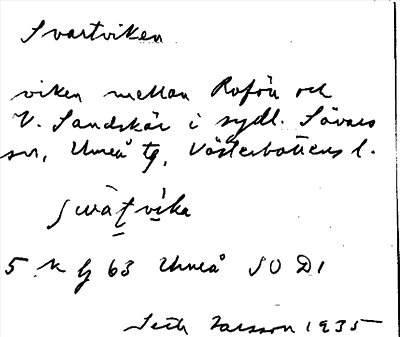 Svartviken
viken mellan Rofön och
V. Sandskär i sydl. Sävars
sn, Umeå tg, Västerbottens l.
swàtvika
5 63 Umeå SO D1
Seth Larsson 1935